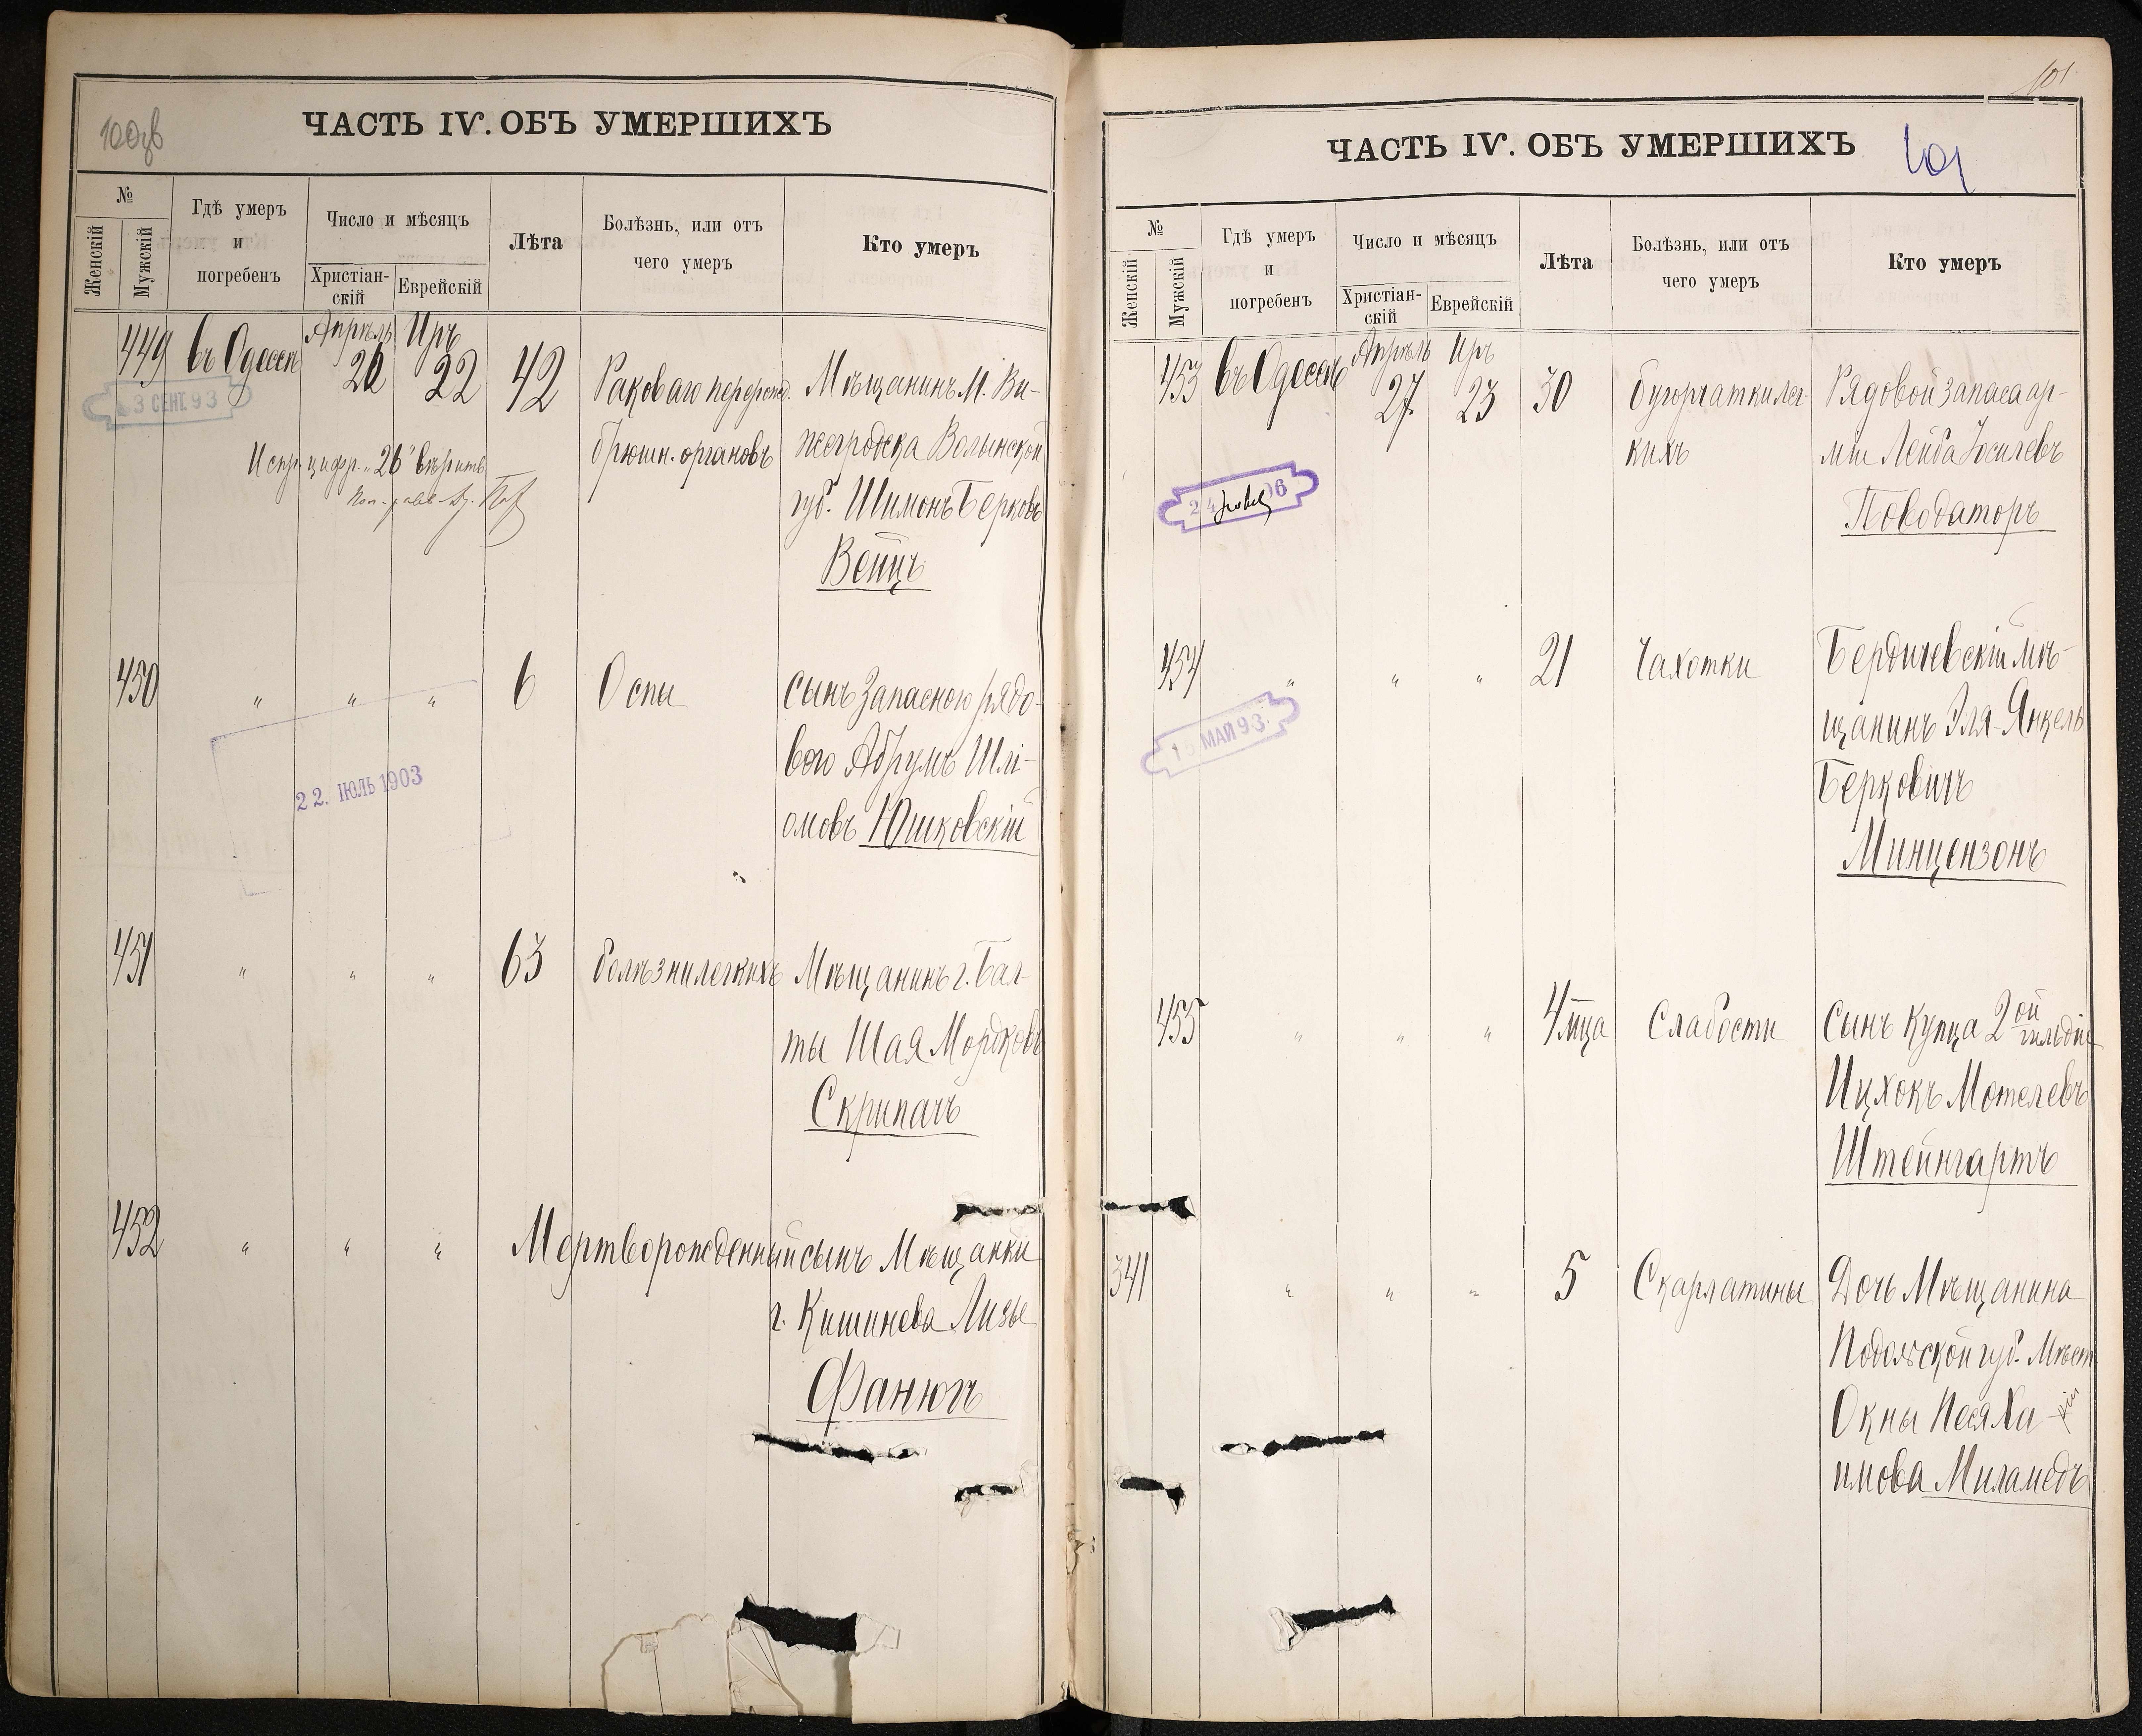 100об
ЧАСТЬ IV. ОБЪ УМЕРШИХЪ
№
Женскій
Мужскій
Гдѣ умеръ
и
погребенъ
Число и мѣсяцъ
Христіан-
скій
Еврейскій
Лѣта
Болѣзнь, или отъ
чего умеръ
Кто умеръ
Апрѣль Иръ
449 въ Одессѣ 26 22 42 Раковаго перерожд. Мѣщанинъ М. Ви-
3 СЕНТ. 93
брюшн. органовъ жегродска Волынской
Испр. цифр. „26" вѣрить
губ. Шимонъ Берковъ
Вейцъ
450 " " " 6 Оспы сынъ Запасного рядо-
вого Абрумъ Шлі-
22. ІЮЛЬ 1903
омовъ Юшковскій
451 " " " 63 болѣзни легкихъ Мѣщанинъ г. Бал-
ты Шая Мордковъ
Скрипачъ
452 " " " Мертворожденный сынъ Мѣщанки
г. Кишинева Лизы
Фанюкъ
101
ЧАСТЬ IV. ОБЪ УМЕРШИХЪ
101
№
Женскій
Мужскій
Гдѣ умеръ
и
погребенъ
Число и мѣсяцъ
Христіан-
скій
Еврейскій
Лѣта
Болѣзнь, или отъ
чего умеръ
Кто умеръ
Апрѣль Иръ
453 въ Одессѣ 27 23 30 бугорчатки лег- Рядовой запаса ар-
кихъ міи Лейба Іосилевъ
Поводаторъ
454 " " " 21 Чахотки Бердичевскій мѣ-
щанинъ Эля-Янкель
МАЙ 93
Берковичъ
Минцензонъ
455 " " " 4 м-ца Слабости Сынъ купца 2ой гильдіи
Ицхокъ Мотелевъ
Штейнгартъ
341 " " " 5 Скарлатины Дочь Мѣщанина
Подольской губ. Мѣст
Окны Песя Ха-
имова Миламедъ